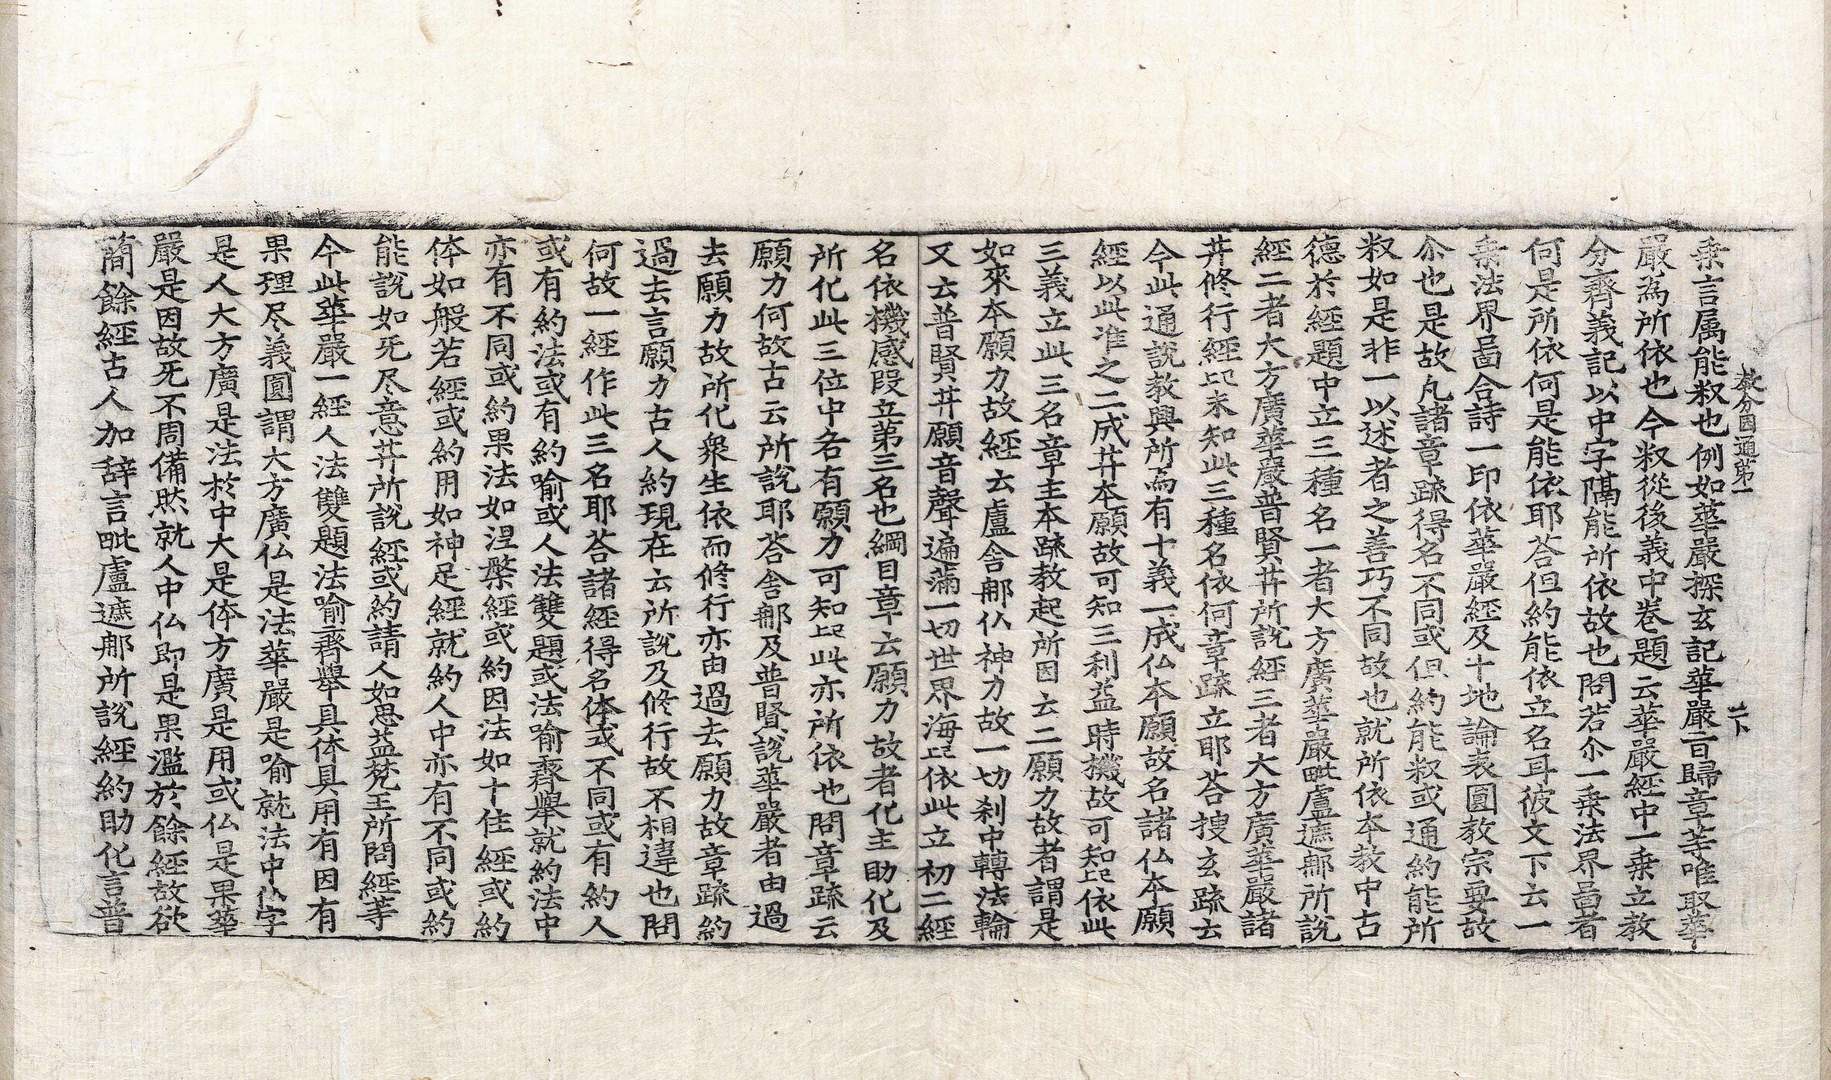 教分圓通第一
二下
乗言属能叙也例如華嚴探玄記華嚴百歸章等唯取華
嚴為所依也今叙從後義中卷題云華嚴經中一乗立教
分齊義記以中字隔能所依故也問若尒一乗法界啚者
何是所依何是能依耶荅但約能依立名耳彼文下云一
乗法界啚合詩一印依華嚴經及十地論表圓教宗要故
尒也是故凡諸章䟽得名不同或但約能叙或通約能所
叙如是非一以述者之善巧不同故也就所依本教中古
德於經題中立三種名一者大方廣華嚴毗盧遮郍所說
經二者大方廣華嚴普賢䒑所說經三者大方廣華嚴諸
䒑修行經已未知此三種名依何章䟽立耶荅搜玄䟽云
今此通說教興所為有十義一成仏本願故名諸仏本願
經以此准之二成䒑本願故可知三利益時機故可知已依此
三義立此三名章主本䟽教起所因云二願力故者謂是
如來本願力故經云盧舍郍仏神力故一切刹中轉法輪
又云普賢䒑願音聲遍滿一切世界海已依此立初二經
名依機感段立第三名也綱目章云願力故者化主助化及
所化此三位中各有願力可知已此亦所依也問章䟽云
願力何故古云所說耶荅舍郍及普賢說華嚴者由過
去願力故所化衆生依而修行亦由過去願力故章䟽約
過去言願力古人約現在云所說及修行故不相違也問
何故一經作此三名耶荅諸經得名体或不同或有約人
或有約法或有約喻或人法雙題或法喻齊舉就約法中
亦有不同或約果法如涅槃經或約因法如十住經或約
体如般若經或約用如神足經就約人中亦有不同或約
能說如无尽意䒑所說經或約請人如思益梵王所問經等
今此華嚴一經人法雙題法喻齊舉具体具用有因有
果理尽義圓謂大方廣仏是法華嚴是喻就法中仏字
是人大方廣是法於中大是体方廣是用或仏是果華
嚴是因故无不周備然就人中仏即是果濫於餘經故欲
蕳餘經古人加辞言毗盧遮郍所說經約助化言普